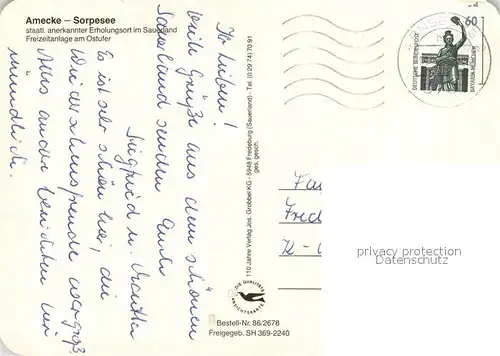 Amecke – Sorpesee
staatl. anerkannter Erholungsort im Sauerland
Freizeitanlage am Ostufer
Ihr Lieben!
viele Grüße aus dem schönen
Sauerland senden Euch
Siegfried u.
Es ist sehr schön hier, die
Alles andere berichten wir
mündlich.
110 Jahre Verlag Jos. Grobbel KG - 5948 Fredeburg (Sauerland) - Tel. (0 29 74) 70 91
ges. gesch.
DIE QUALITÄTS
ANSICHTSKARTE
Bestell-Nr. 86/2678
Freigegeb. SH 369-2240
60
DEUTSCHE BUNDESPOST
BAVARIA MÜNCHEN
Fred
privacy protection
Datenschutz